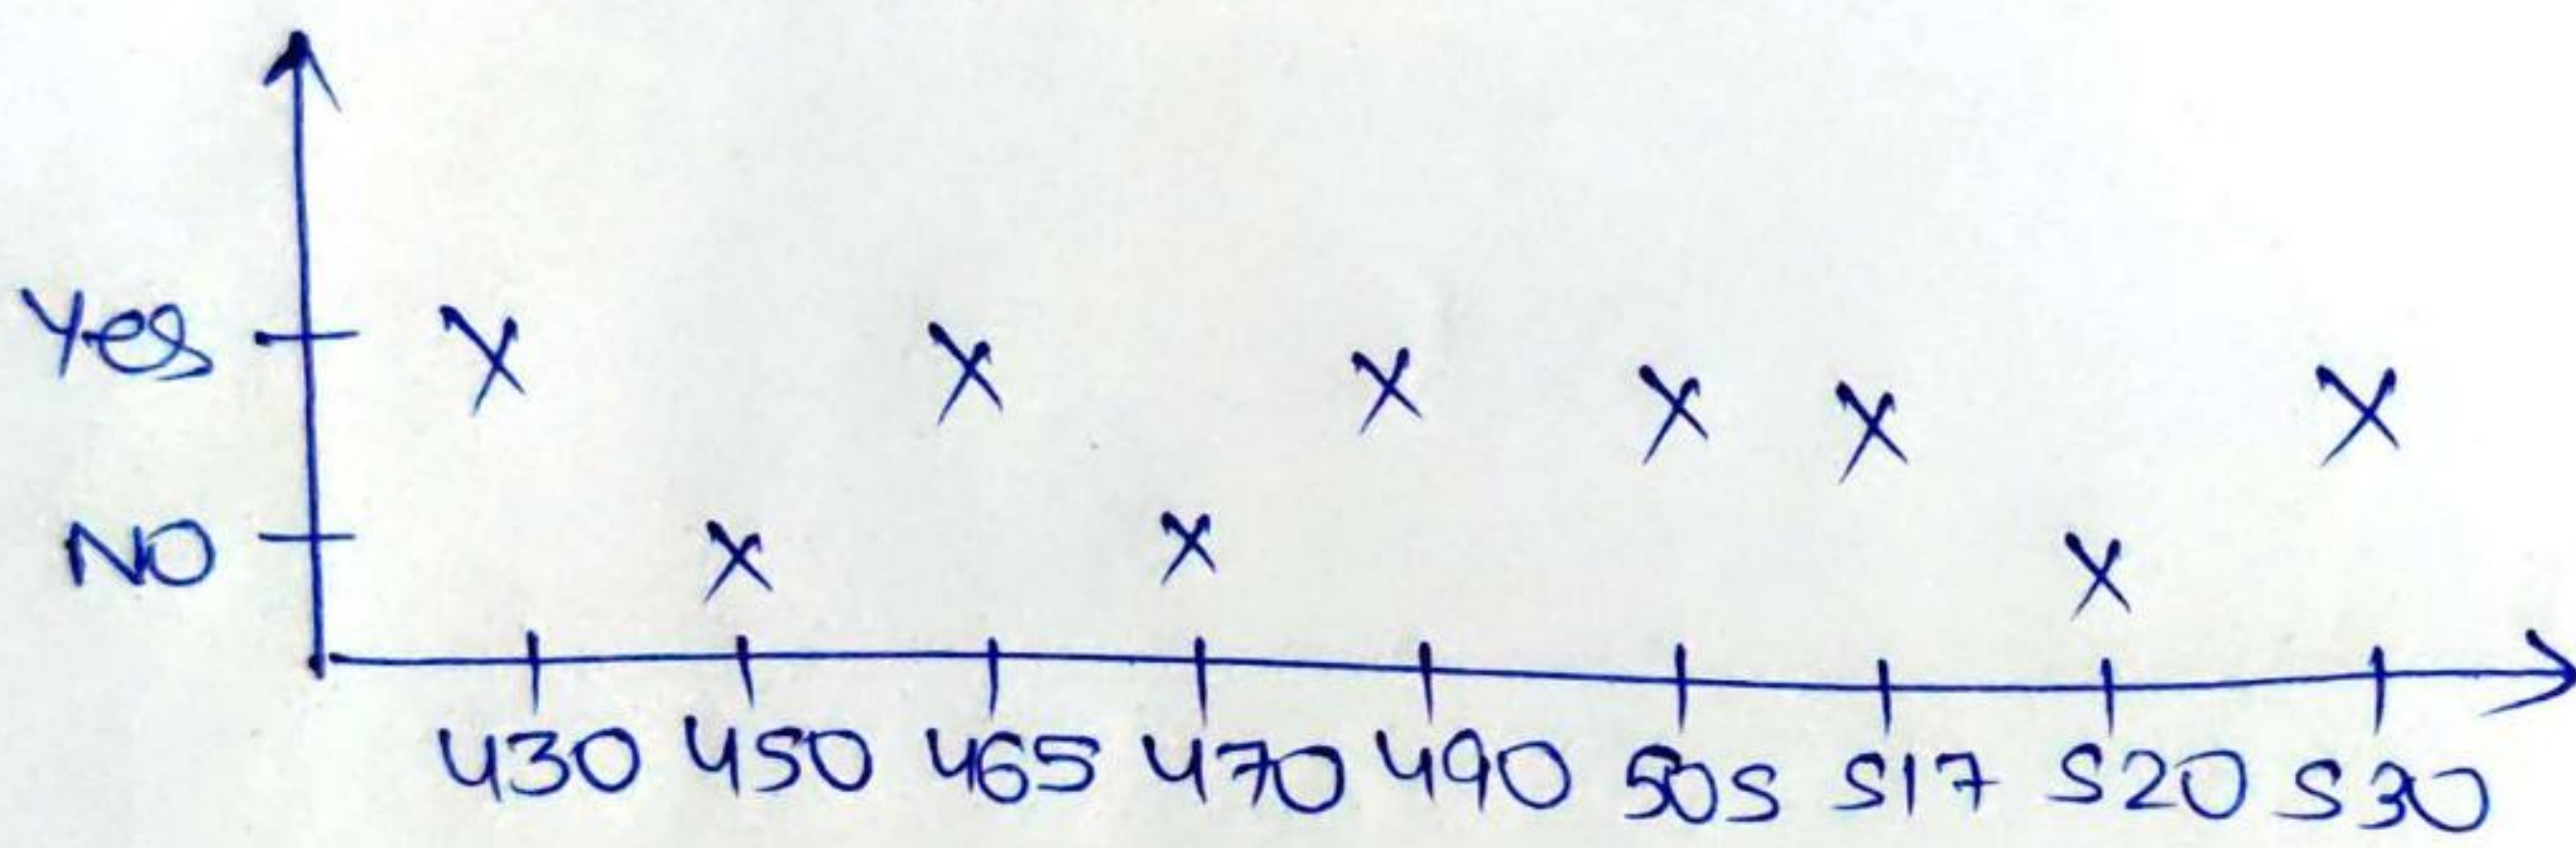 Yes
NO
430 450 465 470 490 505 517 520 530